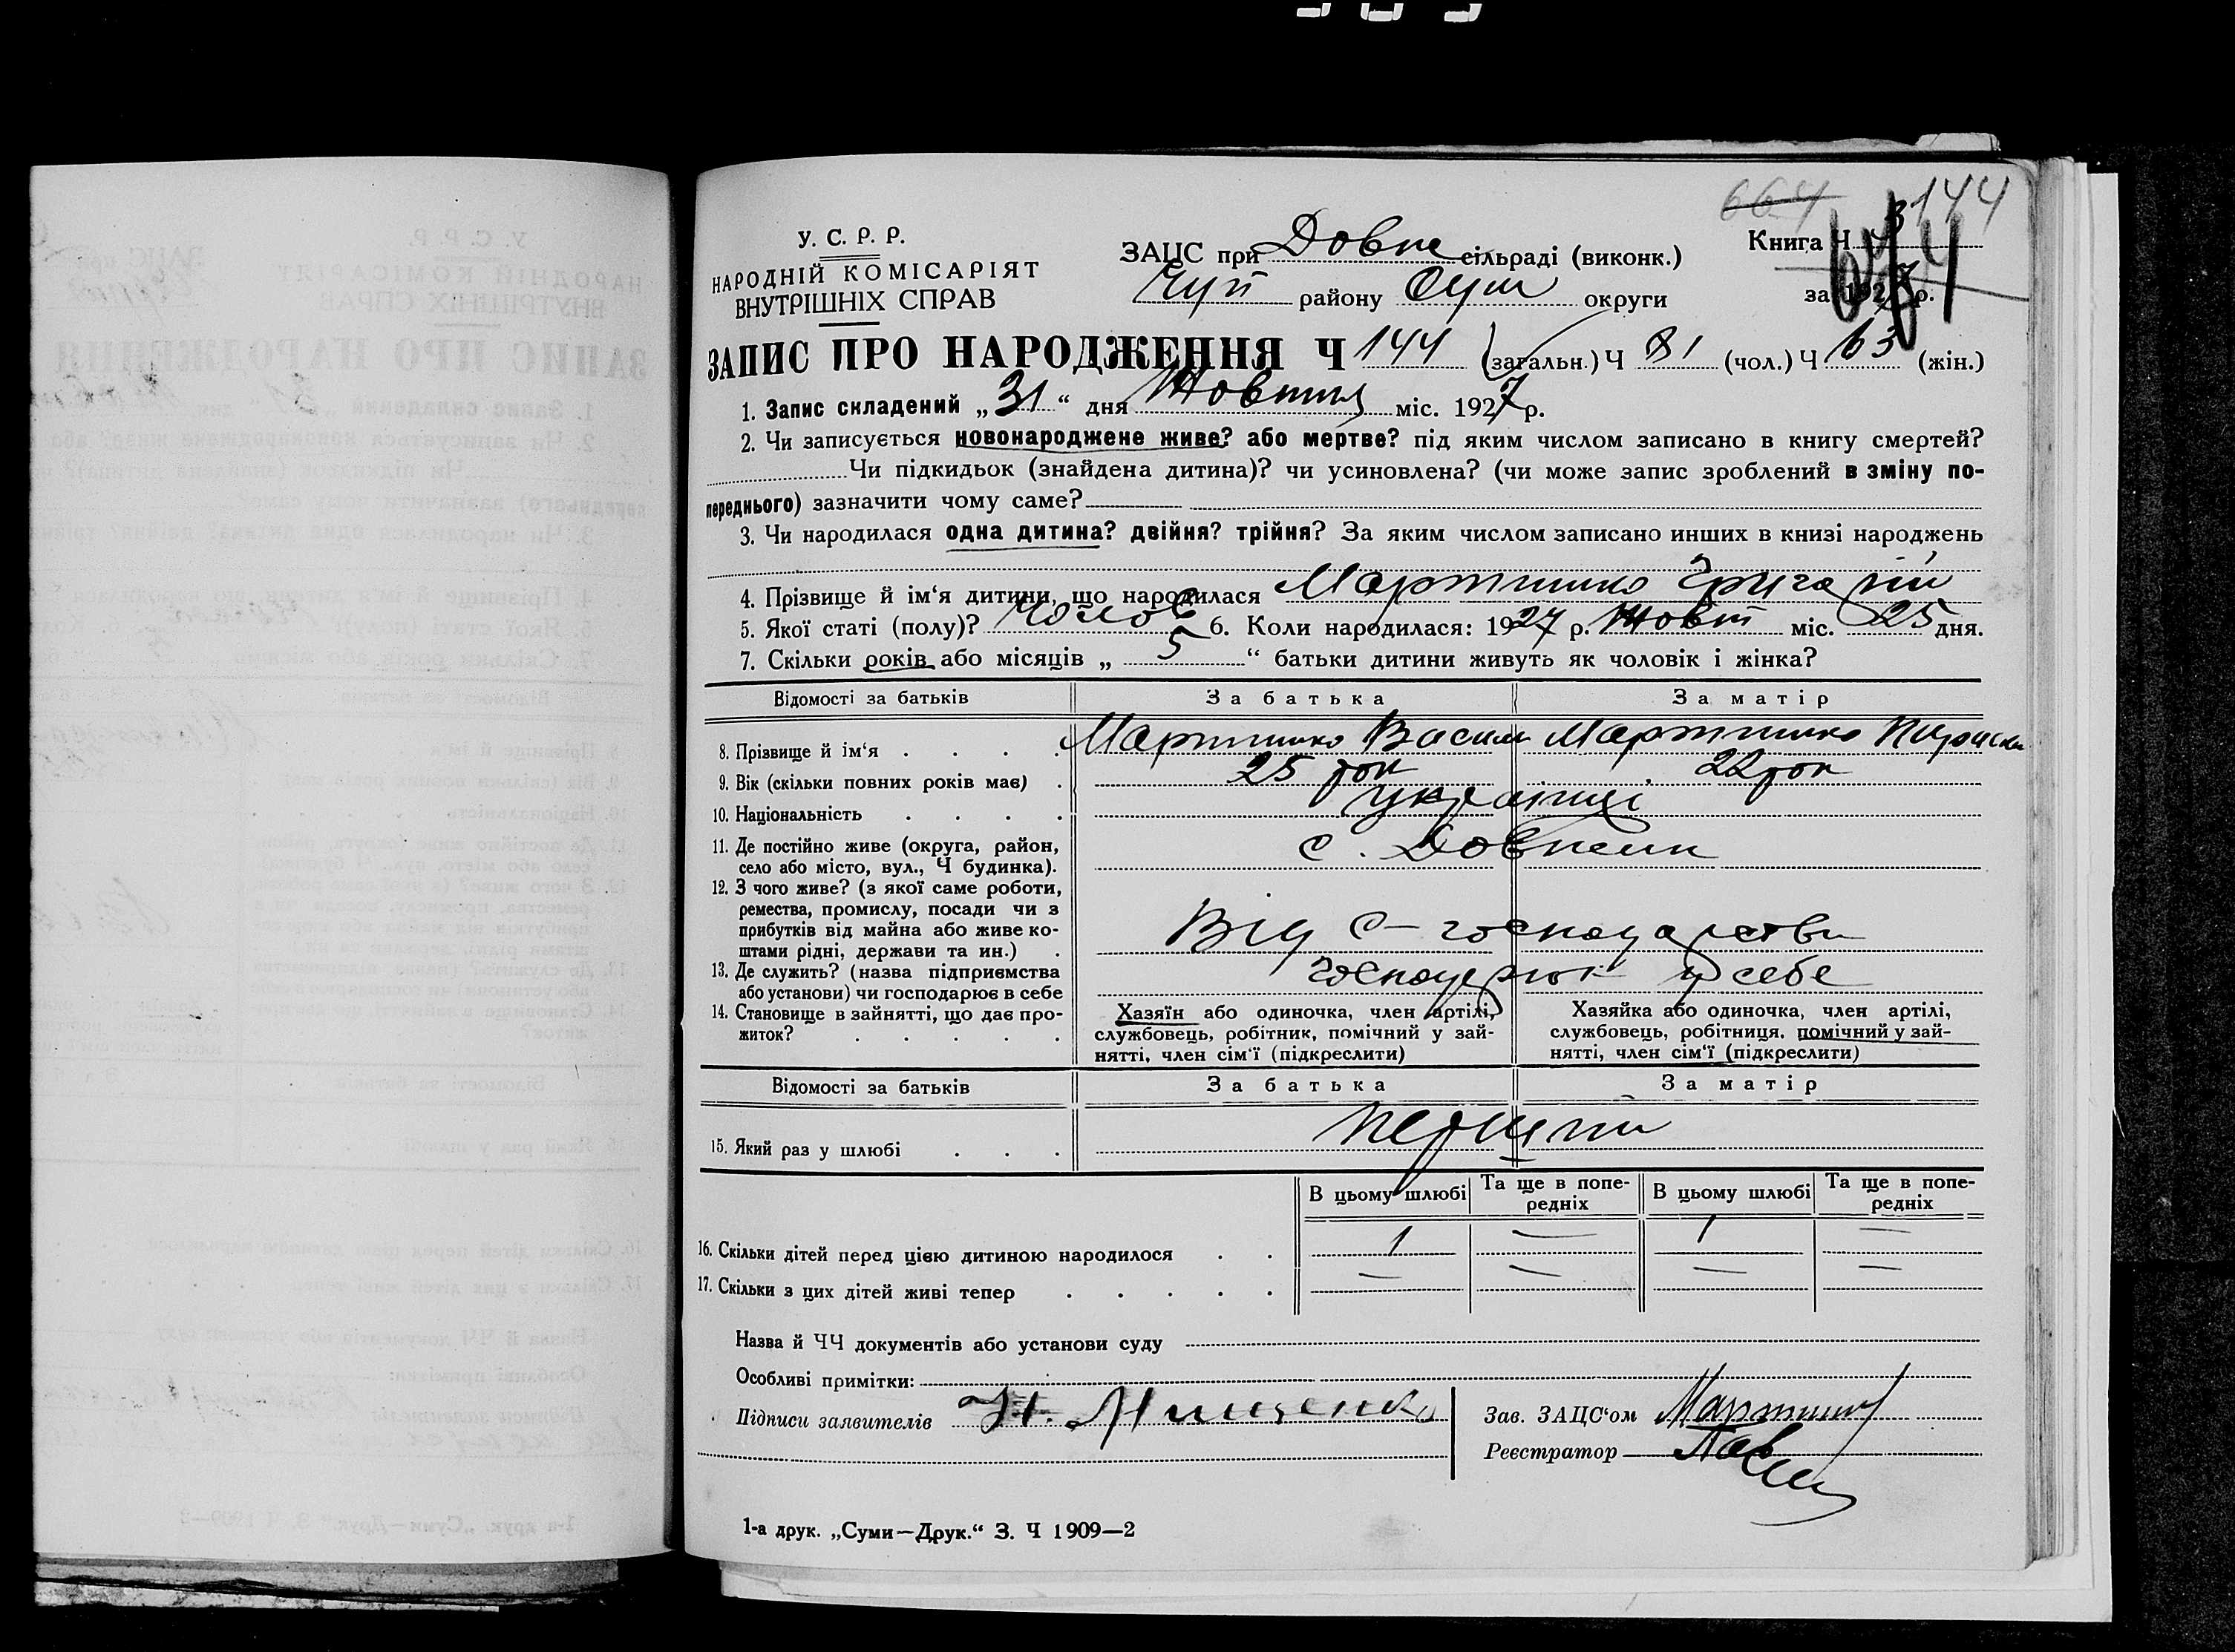 144
664
У. С. Р. Р.
НАРОДНІЙ КОМІСАРІЯТ
ВНУТРІШНІХ СПРАВ
ЗАЦС при Довж сільраді (виконк.)
району Сум округи
Книга Ч
за 1927 р.
ЗАПИС ПРО НАРОДЖЕННЯ Ч 144 (загальн.) Ч 81 (чол.) Ч 63 (жін.)
1. Запис складений „31“ дня Жовтня міс. 1927 р.
2. Чи записується новонароджене живе? або мертве? під яким числом записано в книгу смертей?
Чи підкидьок (знайдена дитина)? чи усиновлена? (чи може запис зроблений в зміну по-
переднього) зазначити чому саме?
3. Чи народилася одна дитина? двійня? трійня? За яким числом записано инших в книзі народжень
4. Прізвище й ім‘я дитини, що народилася Мартинко Григорій
5. Якої статі (полу)? Чолов 6. Коли народилася: 1927 р. Жовт міс. 25 дня.
7. Скільки років або місяців „ 5 “ батьки дитини живуть як чоловік і жінка?
Відомості за батьків За батька За матір
8. Прізвище й ім‘я . . . . Мартинко Васил Мартинко
9. Вік (скільки повних років має) . 25 рок 22 рок
10. Національність . . . . українці
11. Де постійно живе (округа, район,
село або місто, вул., Ч будинка). с.
12. З чого живе? (з якої саме роботи,
ремества, промислу, посади чи з
прибутків від майна або живе ко-
штами рідні, держави та ин.) . Від с-господарства
13. Де служить? (назва підприємства
або установи) чи господарює в себе у себе
14. Становище в зайнятті, що дає про-
житок? . . . . .
Хазяїн або одиночка, член артілі,
службовець, робітник, помічний у зай-
нятті, член сім‘ї (підкреслити)
Хазяйка або одиночка, член артілі,
службовець, робітниця, помічний у зай-
нятті, член сім‘ї (підкреслити)
Відомості за батьків За батька За матір
15. Який раз у шлюбі . . . перший
В цьому шлюбі Та ще в попе-редніх В цьому шлюбі Та ще в попе-редніх
16. Скільки дітей перед цією дитиною народилося . . 1 — 1 —
17. Скільки з цих дітей живі тепер . . . . . — — — —
Назва й ЧЧ документів або установи суду
Особливі примітки:
Підписи заявителів Н. Мищенко
Зав. ЗАЦС‘ом
Реєстратор
1-а друк. „Суми—Друк.“ З. Ч 1909—2